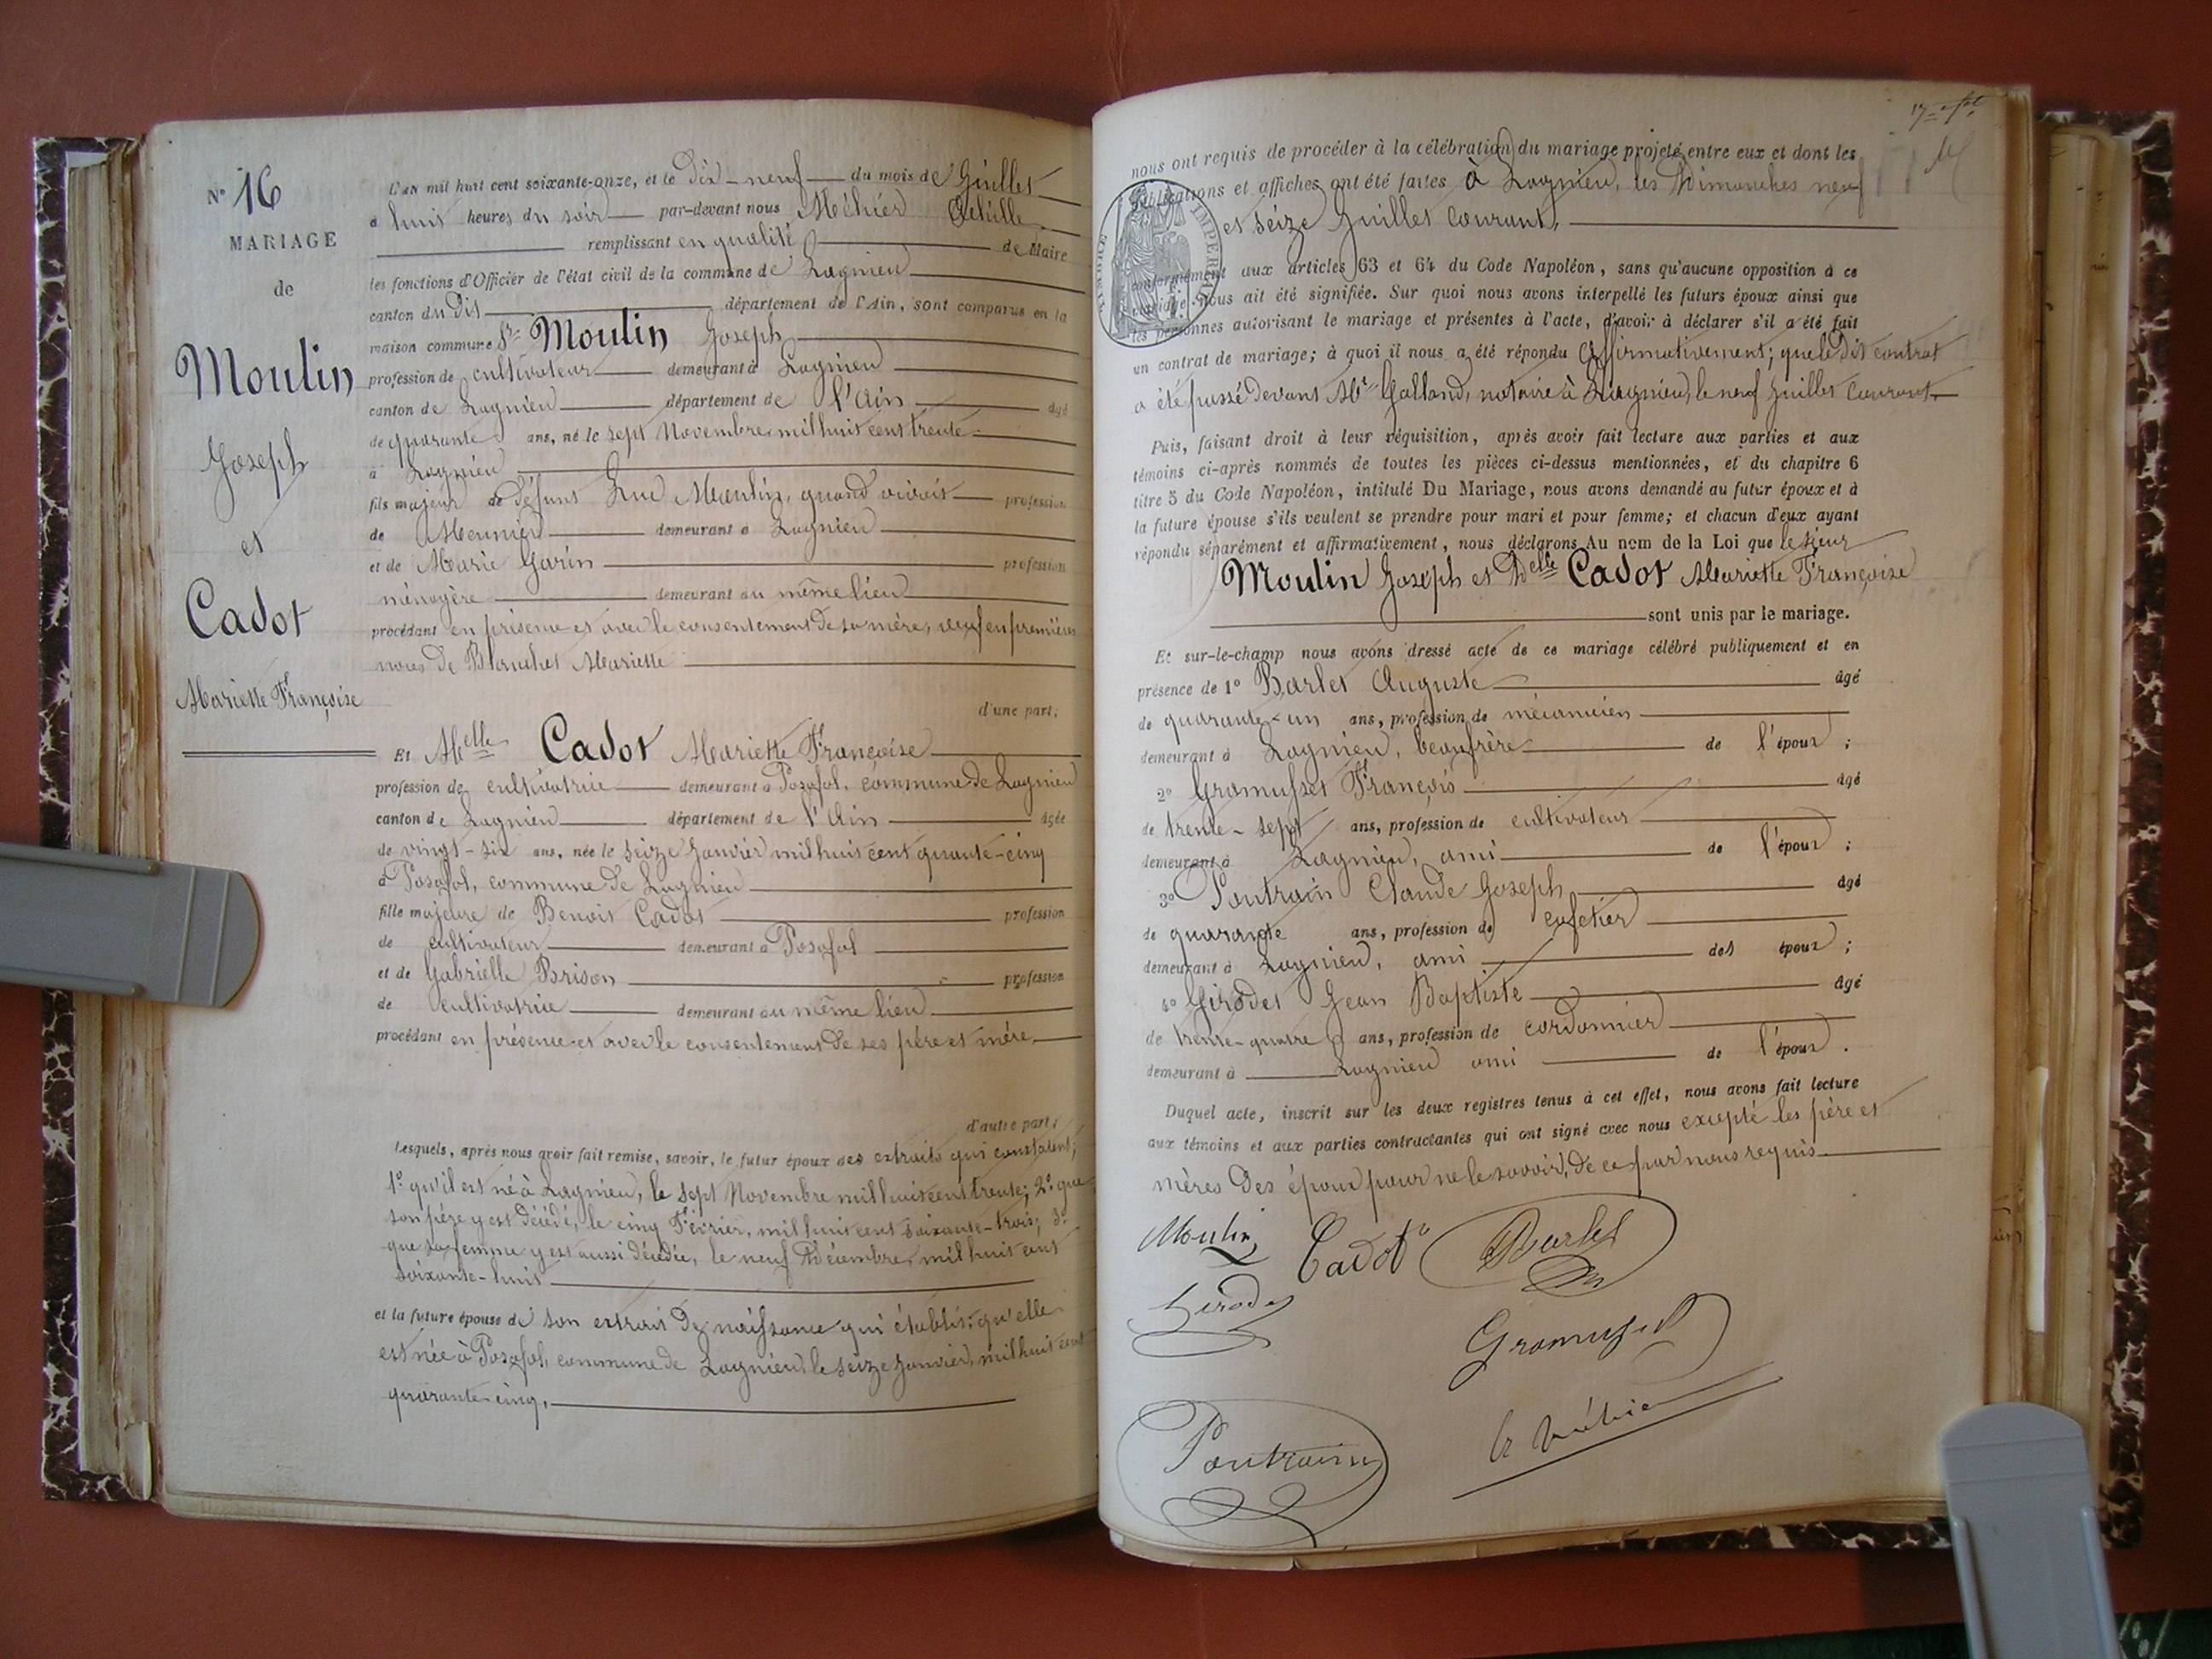 N° 16
MARIAGE
de
Moulin
Joseph
et
Cadot
Mariette Françoise
L'an mil huit cent soixante-onze, et le Dix-neuf du mois de Juillet
à huit heures du soir par-devant nous Méhier Achille
remplissant en qualité de Maire
les fonctions d'Officier de l'état civil de la commune de Lagnieu
canton du dit département de l'Ain, sont comparus en la
maison commune Sr Moulin Joseph
profession de cultivateur demeurant à Lagnieu
canton de Lagnieu département de l'Ain âgé
de quarante ans, né le sept Novembre mil huit cent trente
à Lagnieu
fils majeur de défunt Luc Moulin, quand vivait profession
de Meunier demeurant à Lagnieu
et de Marie Garin profession
ménagère demeurant au même lieu
procédant en présence et avec le consentement de sa mère, veuf en premières
noces de Blanchet Mariette
d'une part;
Et Melle Cadot Mariette Françoise
profession de cultivatrice demeurant à Posafol, commune de Lagnieu
canton de Lagnieu département de l'Ain âgée
de vingt-six ans, née le seize Janvier mil huit cent quarante-cinq
à Posafol, commune de Lagnieu
fille majeure de Benoit Cadot profession
de cultivateur demeurant à Posafol
et de Gabrielle Brison profession
de cultivatrice demeurant au même lieu
procédant en présence et avec le consentement de ses père et mère
d'autre part;
Lesquels, après nous avoir fait remise, savoir, le futur époux des extraits qui constatent;
1° qu'il est né à Lagnieu, le sept Novembre mil huit cent trente; 2° que
son père y est décédé, le cinq Février, mil huit cent soixante-trois; 3°
que sa femme y est aussi décédée, le neuf Décembre mil huit cent
soixante-huit
et la future épouse de son extrait de naissance qui établit: qu'elle
est née à Posafol, commune de Lagnieu, le seize Janvier, mil huit cent
quarante-cinq,
nous ont requis de procéder à la célébration du mariage projeté entre eux et dont les
publications et affiches ont été faites à Lagnieu, les Dimanches neuf
et seize Juillet courant,
conformément aux articles 63 et 64 du Code Napoléon, sans qu'aucune opposition à ce
mariage nous ait été signifiée. Sur quoi nous avons interpellé les futurs époux ainsi que
les personnes autorisant le mariage et présentes à l'acte, d'avoir à déclarer s'il a été fait
un contrat de mariage; à quoi il nous a été répondu affirmativement; que le dit contrat
a été passé devant Me Galland, notaire à Lagnieu, le neuf Juillet courant
Puis, faisant droit à leur réquisition, après avoir fait lecture aux parties et aux
témoins ci-après nommés de toutes les pièces ci-dessus mentionnées, et du chapitre 6
titre 5 du Code Napoléon, intitulé Du Mariage, nous avons demandé au futur époux et à
la future épouse s'ils veulent se prendre pour mari et pour femme; et chacun d'eux ayant
répondu séparément et affirmativement, nous déclarons Au nom de la Loi que le sieur
Moulin Joseph et Delle Cadot Mariette Françoise
sont unis par le mariage.
Et sur-le-champ nous avons dressé acte de ce mariage célébré publiquement et en
présence de 1° Barlet Auguste âgé
de quarante-un ans, profession de mécanicien
demeurant à Lagnieu, beaufrère de l'époux;
2° Gramusset François âgé
de trente-sept ans, profession de cultivateur
demeurant à Lagnieu, ami de l'époux;
3° Pontrain Claude Joseph âgé
de quarante ans, profession de cafetier
demeurant à Lagnieu, ami des époux;
4° Girodet Jean Baptiste âgé
de trente-quatre ans, profession de cordonnier
demeurant à Lagnieu ami de l'époux.
Duquel acte, inscrit sur les deux registres tenus à cet effet, nous avons fait lecture
aux témoins et aux parties contractantes qui ont signé avec nous excepté les père et
mères des époux pour ne le savoir, de ce par nous requis
Moulin Cadot Barlet
Girodet
Gramusset
Pontrain
A Méhier